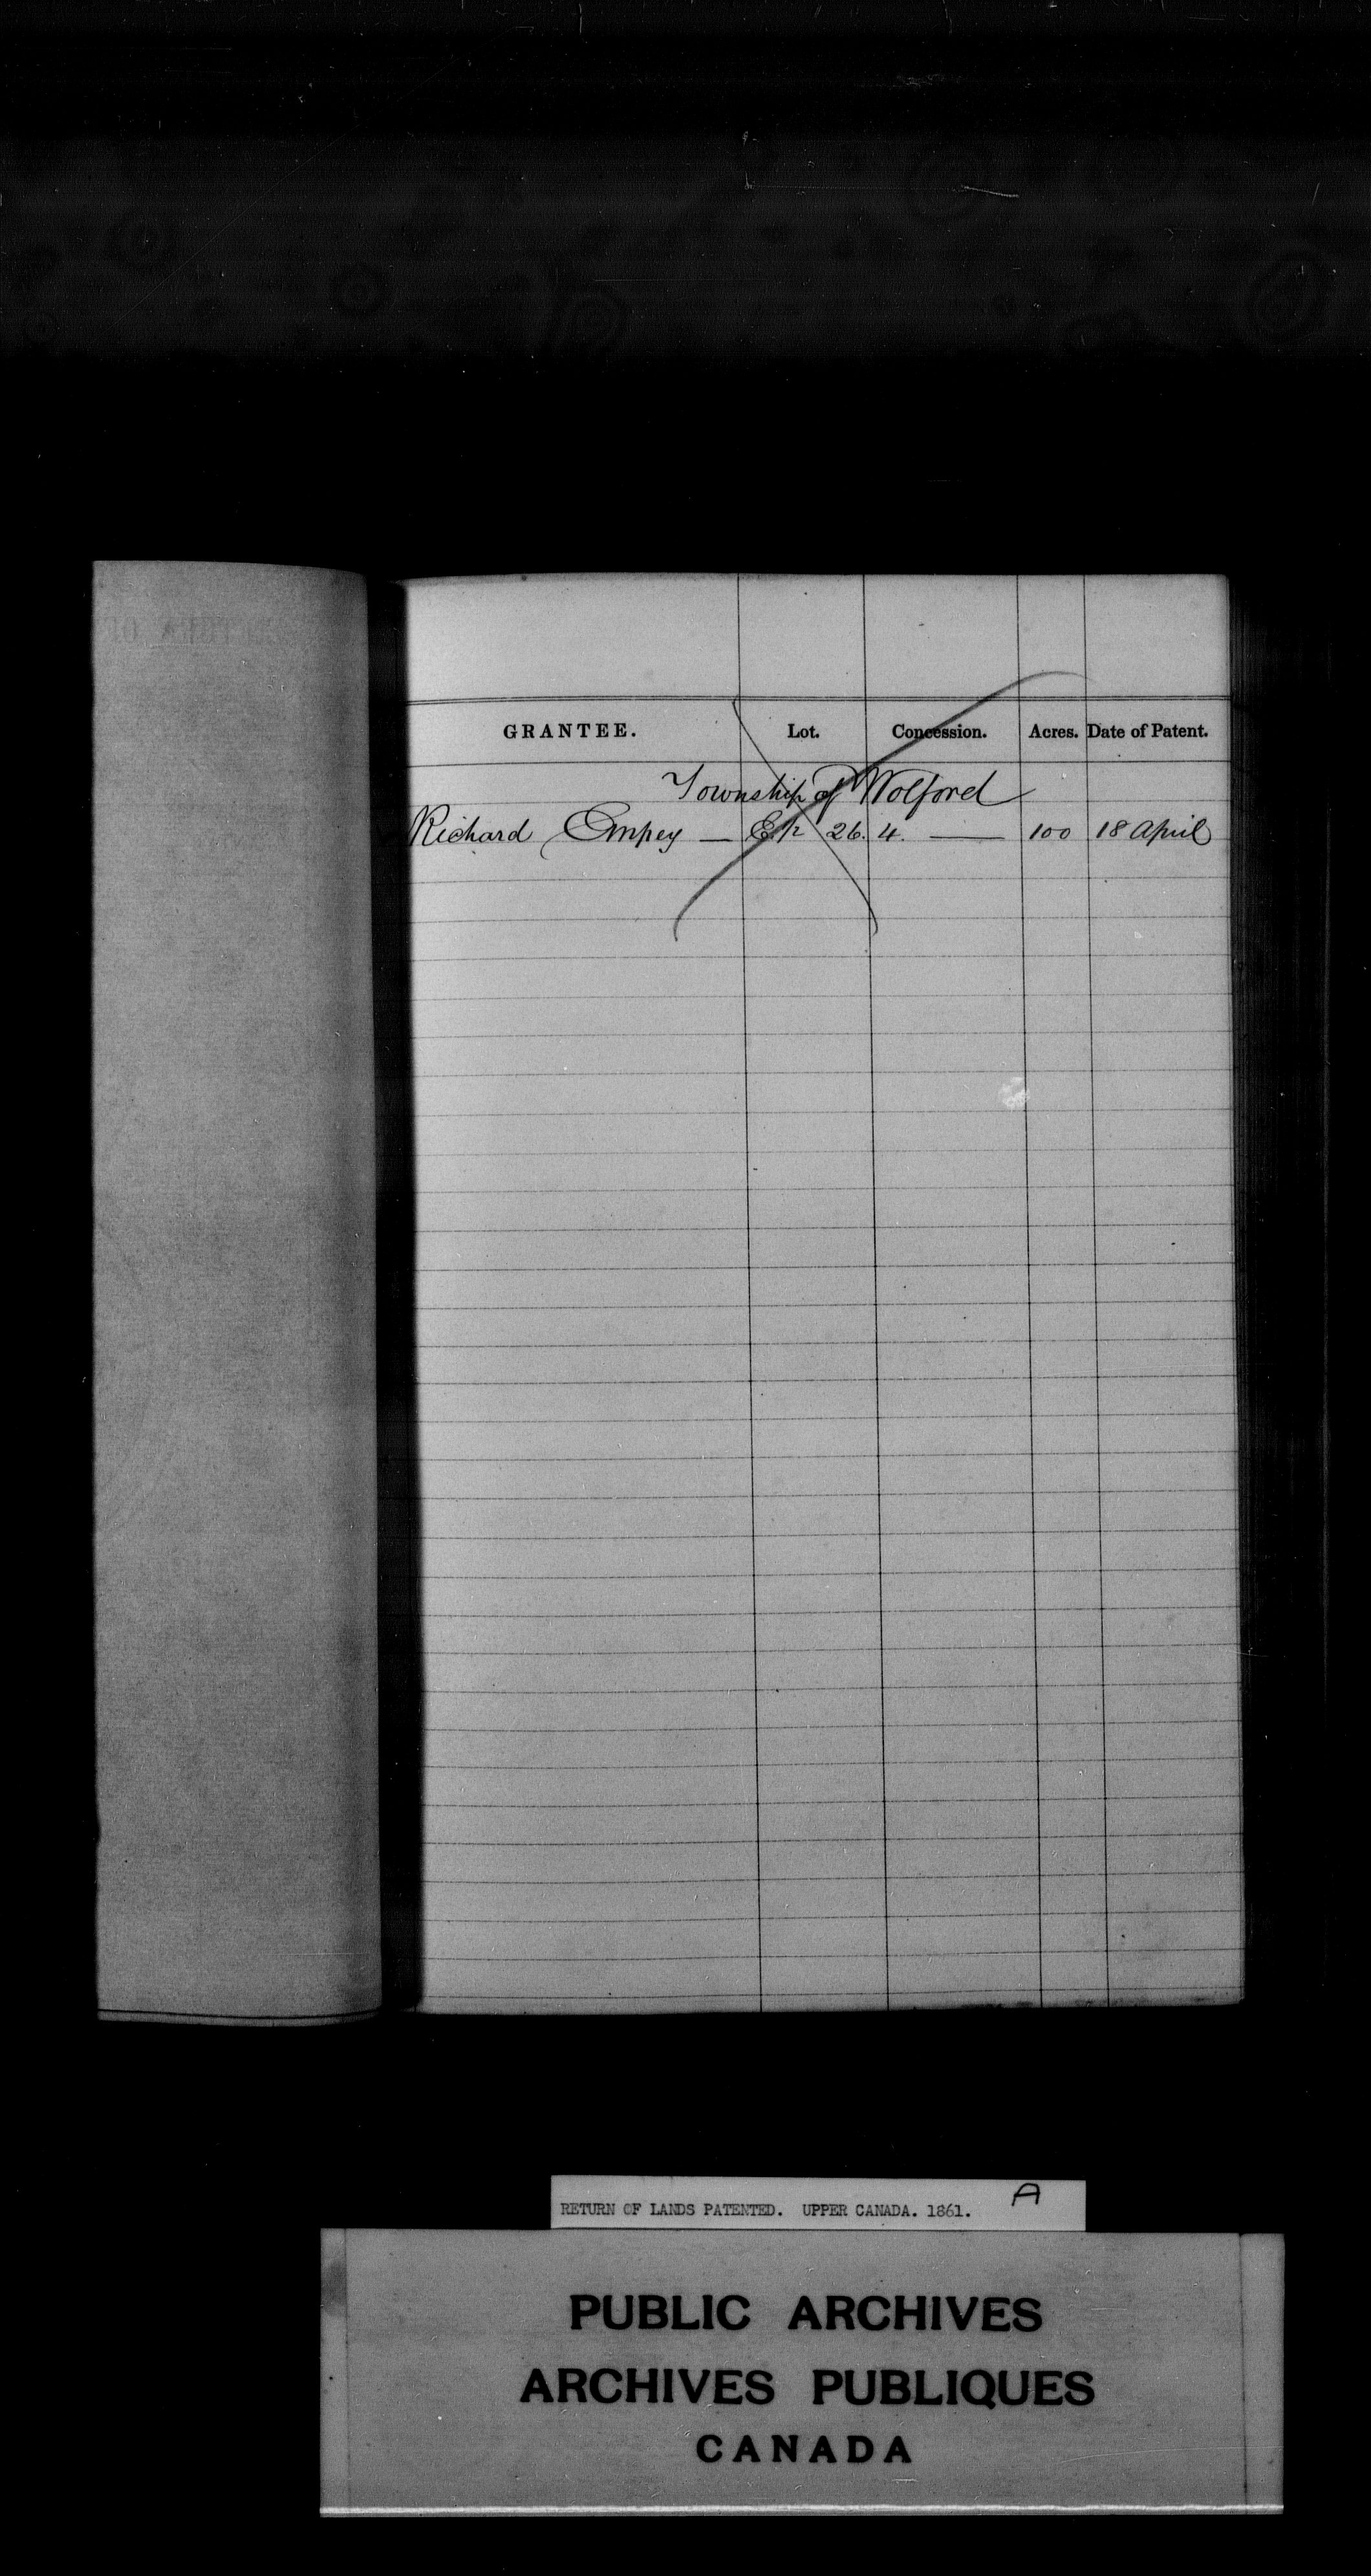 GRANTEE. Lot. Concession. Acres. Date of Patent.
Township of Wolford
Richard Empey — E½ 26. 4. — 100 18 April
RETURN OF LANDS PATENTED. UPPER CANADA. 1861. A
PUBLIC ARCHIVES
ARCHIVES PUBLIQUES
CANADA